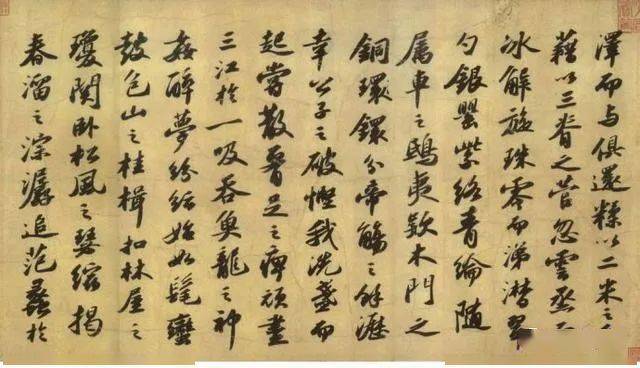 澤而与俱還糅以二米之
藉以三脊之菅忽雲烝而
冰解旋珠零而涕潸翠
勺銀罌紫絡青綸隨
属車之鴟夷款木門之
銅環鐶分帝觴之餘瀝
幸公子之破慳我洗盞而
起嘗散腰足之痺頑盡
三江於一吸吞魚龍之神
姦醉夢紛紜始如髦蠻
鼓包山之桂楫扣林屋之
瓊關卧松風之瑟縮揭
春溜之淙潺追范蠡於